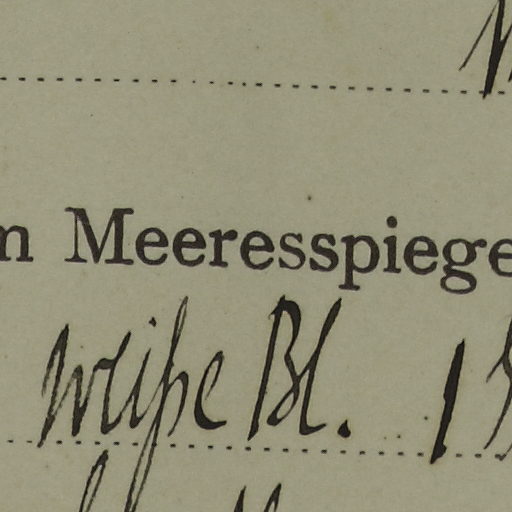 m Meeresspiege
weiße Bl. 1